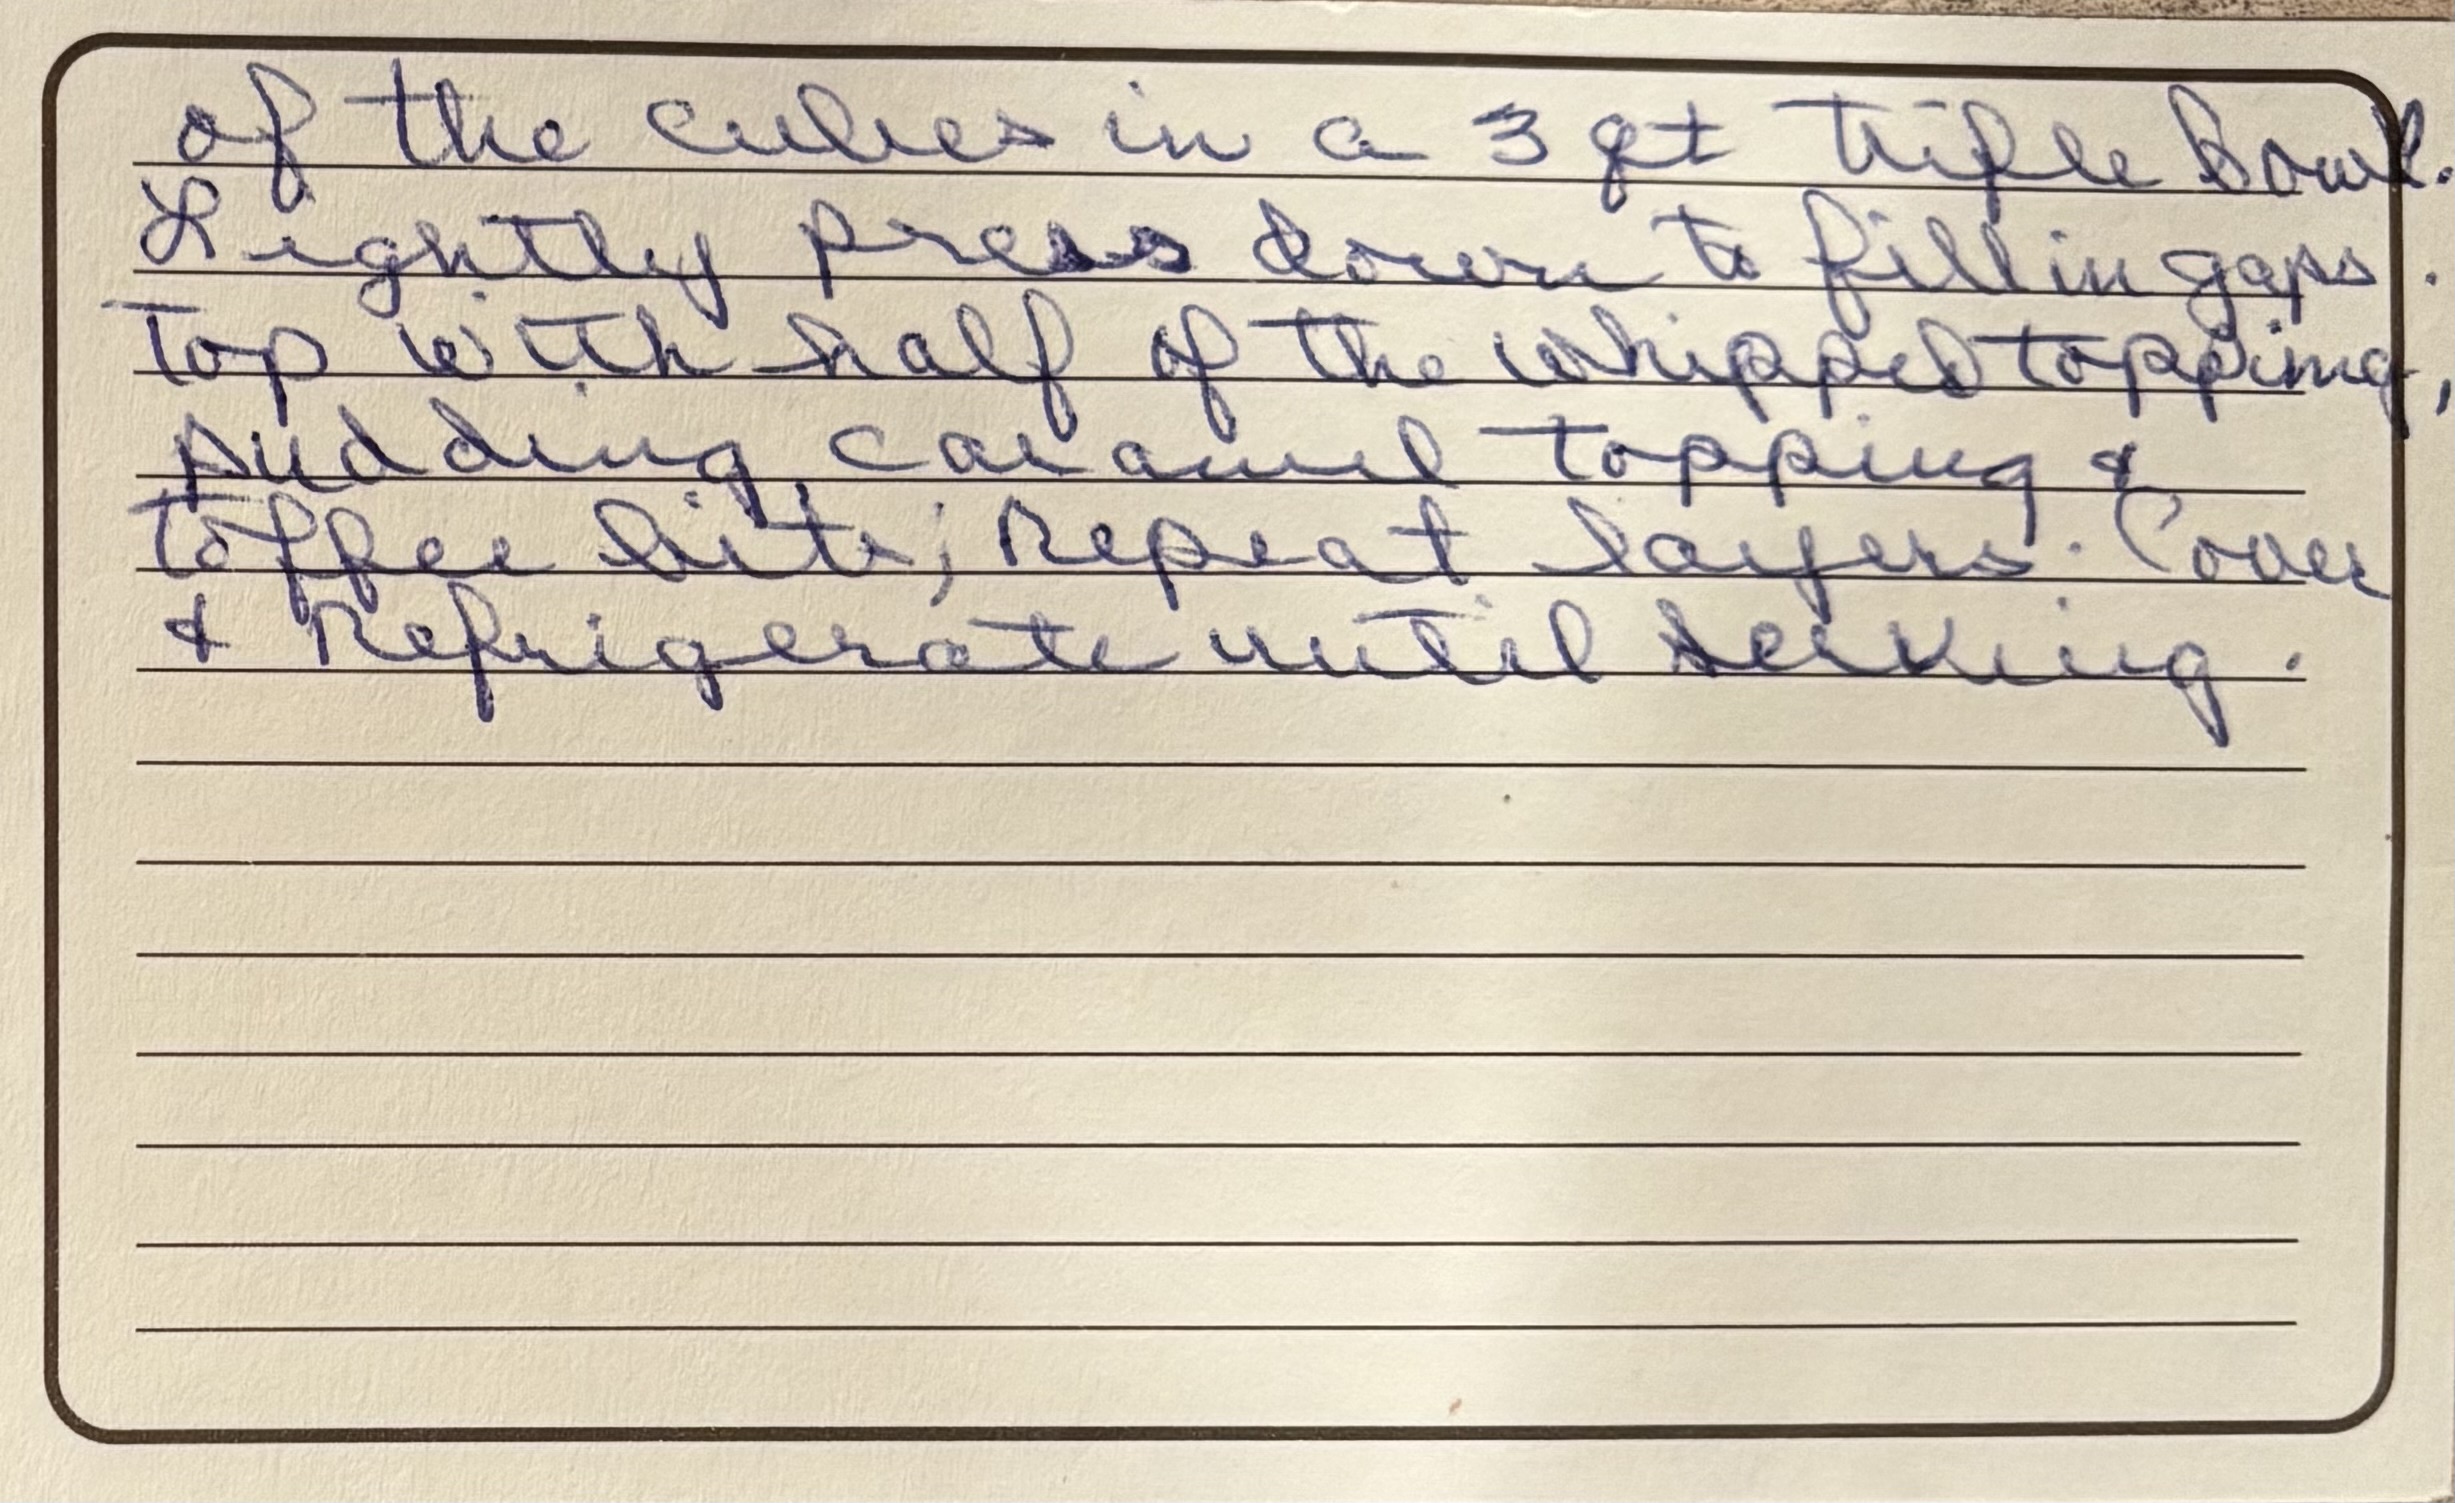 of the cubes in a 3 qt trifle bowl.
Lightly press down to fill in gaps.
Top with half of the whipped topping,
pudding, caramel topping &
toffee bits; Repeat layers. Cover
& Refrigerate until serving.